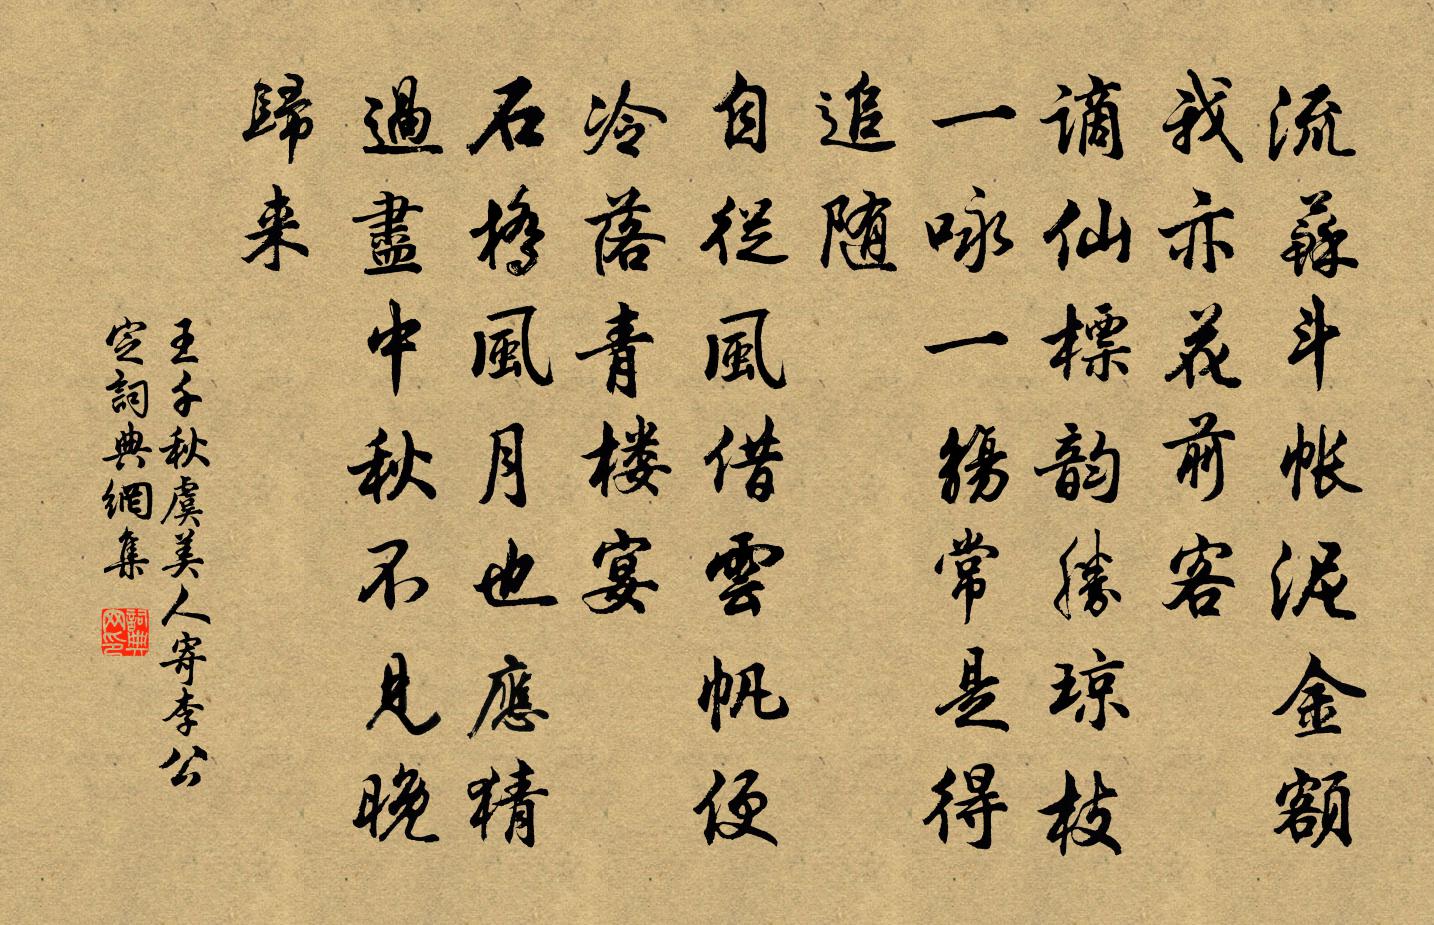 流蘇斗帳泥金額
我亦花前客
謫仙標韵勝琼枝
一咏一觴常是得
追随
自從風借雲帆便
冷落青楼宴
石橋風月也應猜
過盡中秋不見晚
歸来
王千秋虞美人寄李公
定詞典網集
詞典
网印